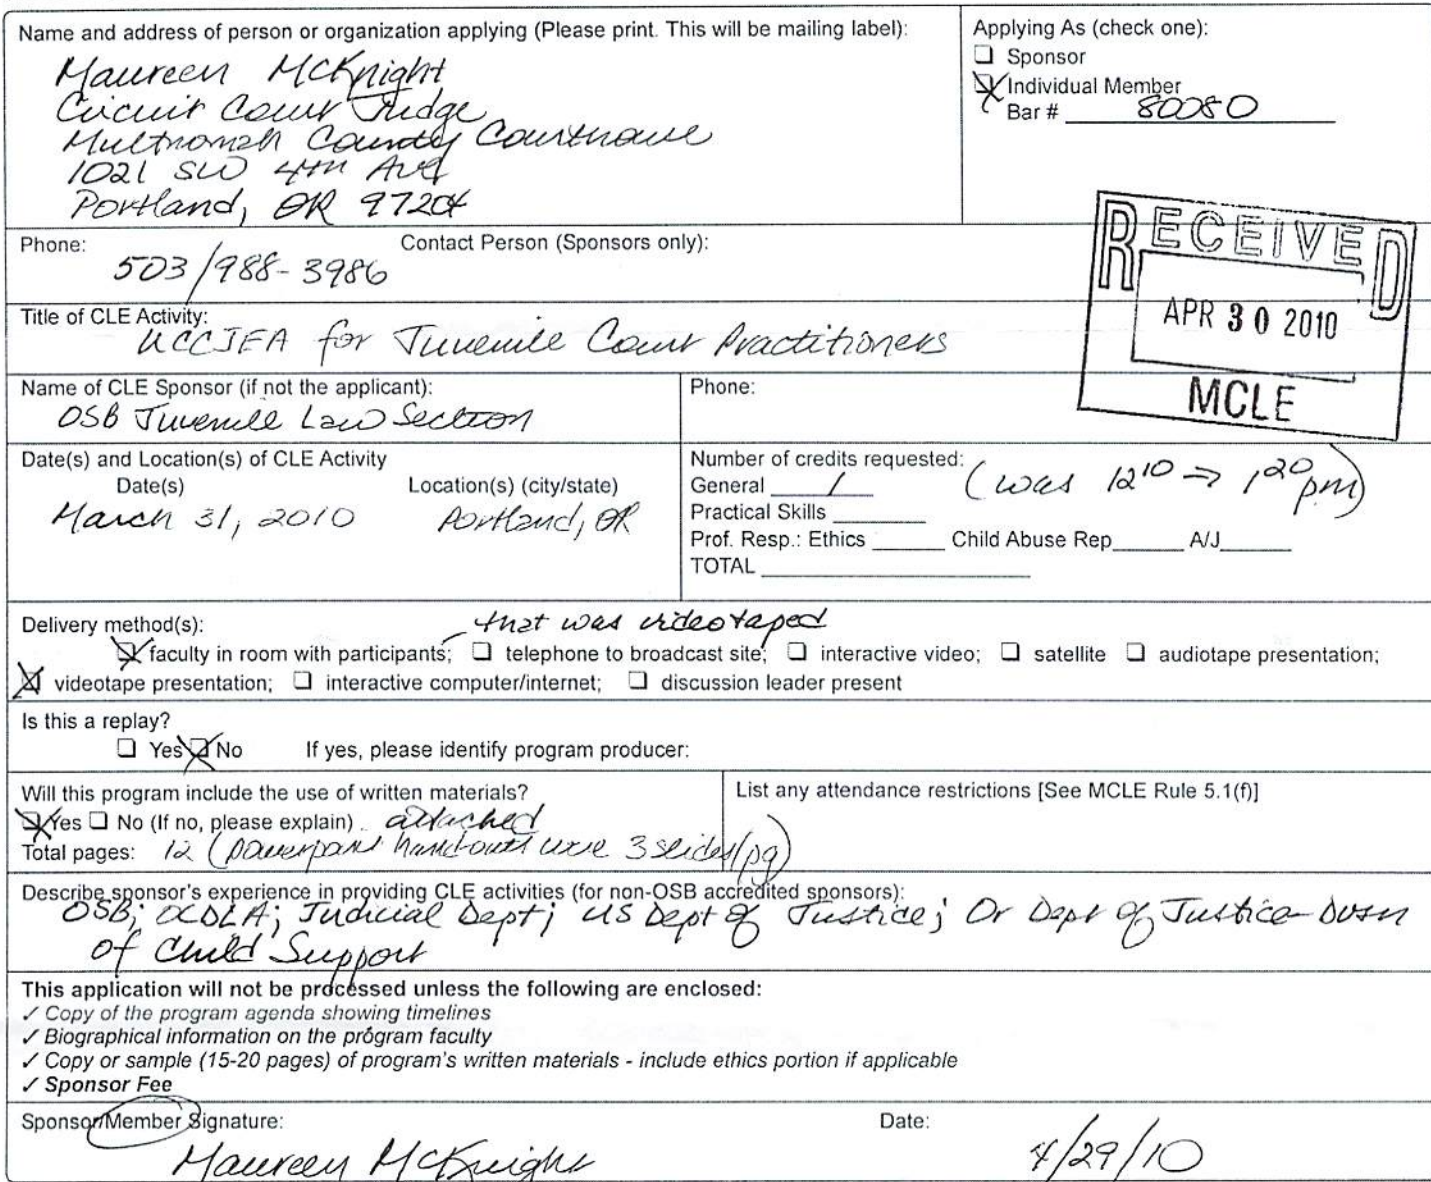 Name and address of person or organization applying (Please print. This will be mailing label):
Maureen McKnight
Circuit Court Judge
Multnomah County Courthouse
1021 SW 4th Ave
Portland, OR 97204
Applying As (check one):
Sponsor
Individual Member
Bar # 80080
RECEIVED
APR 30 2010
MCLE
Phone: Contact Person (Sponsors only):
503/988-3986
Title of CLE Activity:
UCCJEA for Juvenile Court Practitioners
Name of CLE Sponsor (if not the applicant):
OSB Juvenile Law Section
Phone:
Date(s) and Location(s) of CLE Activity
Date(s) Location(s) (city/state)
March 31, 2010 Portland, OR
Number of credits requested:
General 1 (was 12 10 → 1 20 pm)
Practical Skills
Prof. Resp.: Ethics Child Abuse Rep A/J
TOTAL
Delivery method(s): that was videotaped
faculty in room with participants; telephone to broadcast site; interactive video; satellite audiotape presentation;
videotape presentation; interactive computer/internet; discussion leader present
Is this a replay?
Yes No If yes, please identify program producer:
Will this program include the use of written materials?
Yes No (If no, please explain) attached
Total pages: 12 (powerpoint handouts were 3 slides/pg)
List any attendance restrictions [See MCLE Rule 5.1(f)]
Describe sponsor's experience in providing CLE activities (for non-OSB accredited sponsors):
OSB; OCDLA; Judicial Dept; US Dept of Justice; Or Dept of Justice-Divsn
of Child Support
This application will not be processed unless the following are enclosed:
✓ Copy of the program agenda showing timelines
✓ Biographical information on the program faculty
✓ Copy or sample (15-20 pages) of program's written materials - include ethics portion if applicable
✓ Sponsor Fee
Sponsor/Member Signature: Date:
Maureen McKnight 4/29/10